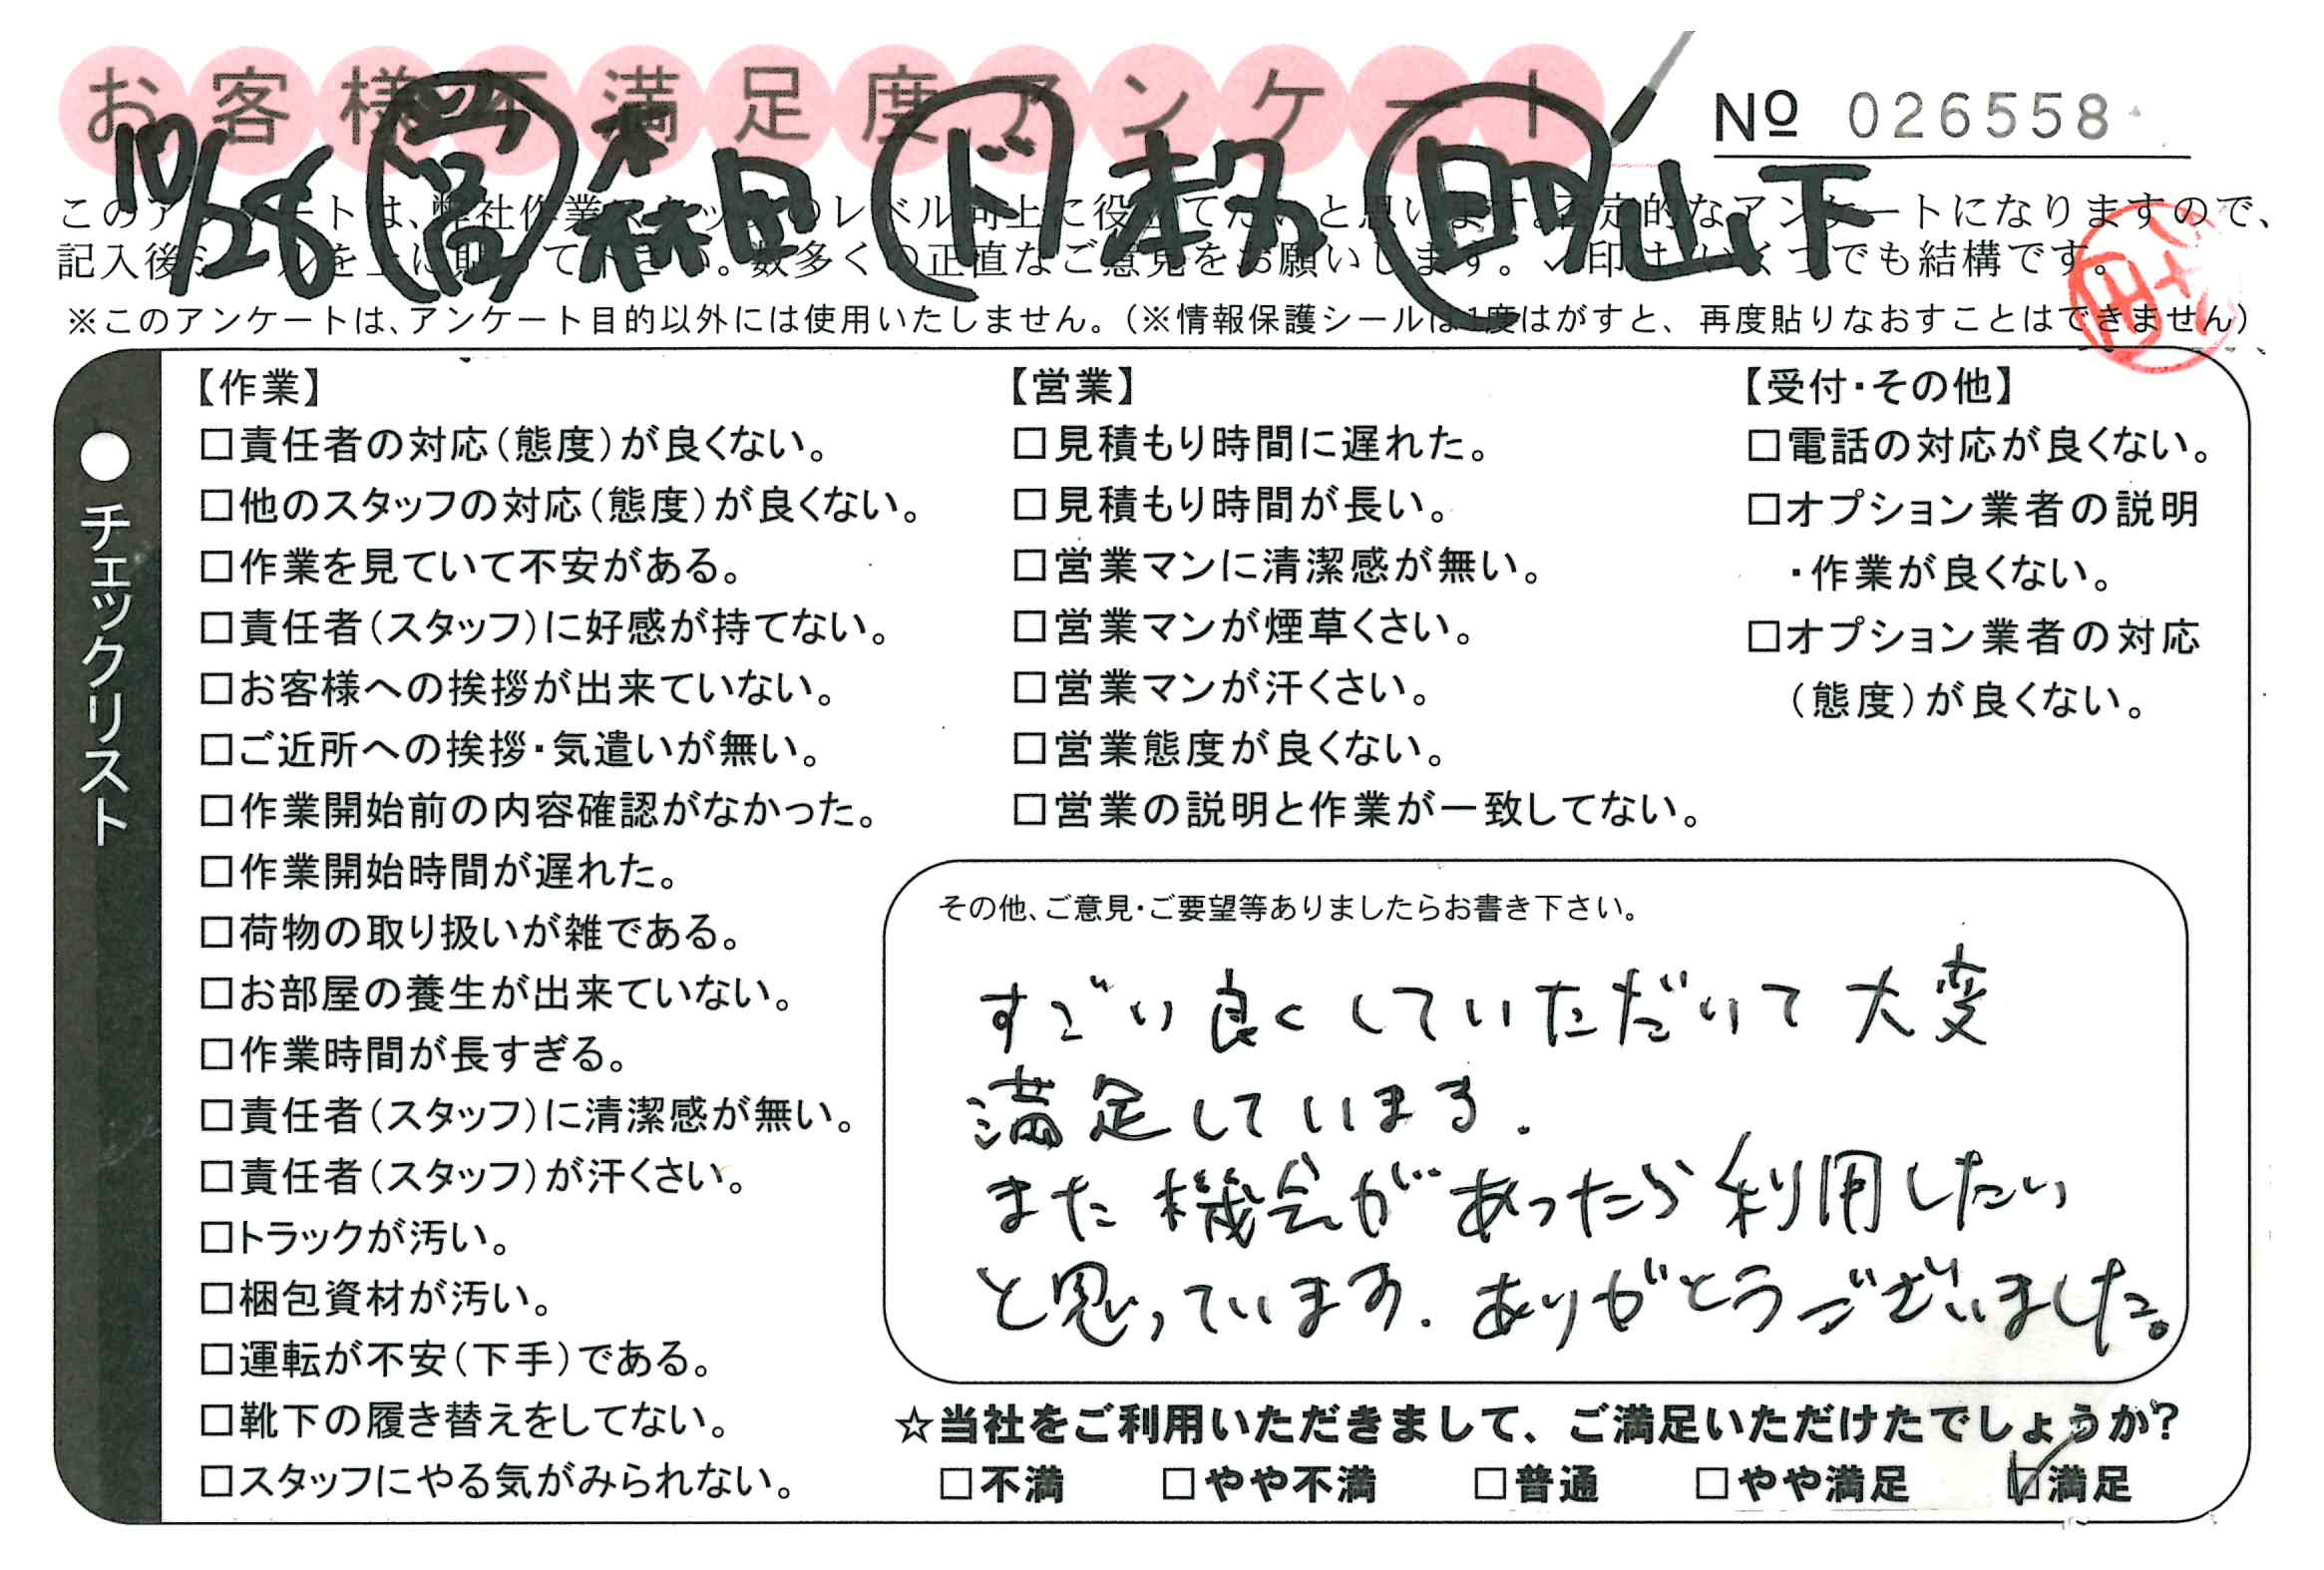 お客様不満足度アンケート
№ 026558
10/28 営 森田 ド 本丸 助 山下
このアンケートは、弊社作業スタッフのレベル向上に役立てたいと思います。否定的なアンケートになりますので、
記入後シールを上に貼って下さい。数多くの正直なご意見をお願いします。✓印はいくつでも結構です。
※このアンケートは、アンケート目的以外には使用いたしません。(※情報保護シールは1度はがすと、再度貼りなおすことはできません)
●チェックリスト
【作業】
□責任者の対応(態度)が良くない。
□他のスタッフの対応(態度)が良くない。
□作業を見ていて不安がある。
□責任者(スタッフ)に好感が持てない。
□お客様への挨拶が出来ていない。
□ご近所への挨拶・気遣いが無い。
□作業開始前の内容確認がなかった。
□作業開始時間が遅れた。
□荷物の取り扱いが雑である。
□お部屋の養生が出来ていない。
□作業時間が長すぎる。
□責任者(スタッフ)に清潔感が無い。
□責任者(スタッフ)が汗くさい。
□トラックが汚い。
□梱包資材が汚い。
□運転が不安(下手)である。
□靴下の履き替えをしてない。
□スタッフにやる気がみられない。
【営業】
□見積もり時間に遅れた。
□見積もり時間が長い。
□営業マンに清潔感が無い。
□営業マンが煙草くさい。
□営業マンが汗くさい。
□営業態度が良くない。
□営業の説明と作業が一致してない。
【受付・その他】
□電話の対応が良くない。
□オプション業者の説明
・作業が良くない。
□オプション業者の対応
(態度)が良くない。
その他、ご意見・ご要望等ありましたらお書き下さい。
すごい良くしていただいて大変
満足しています.
また機会があったら利用したい
と思っています. ありがとうございました。
☆当社をご利用いただきまして、ご満足いただけたでしょうか?
□不満 □やや不満 □普通 □やや満足 ☑満足